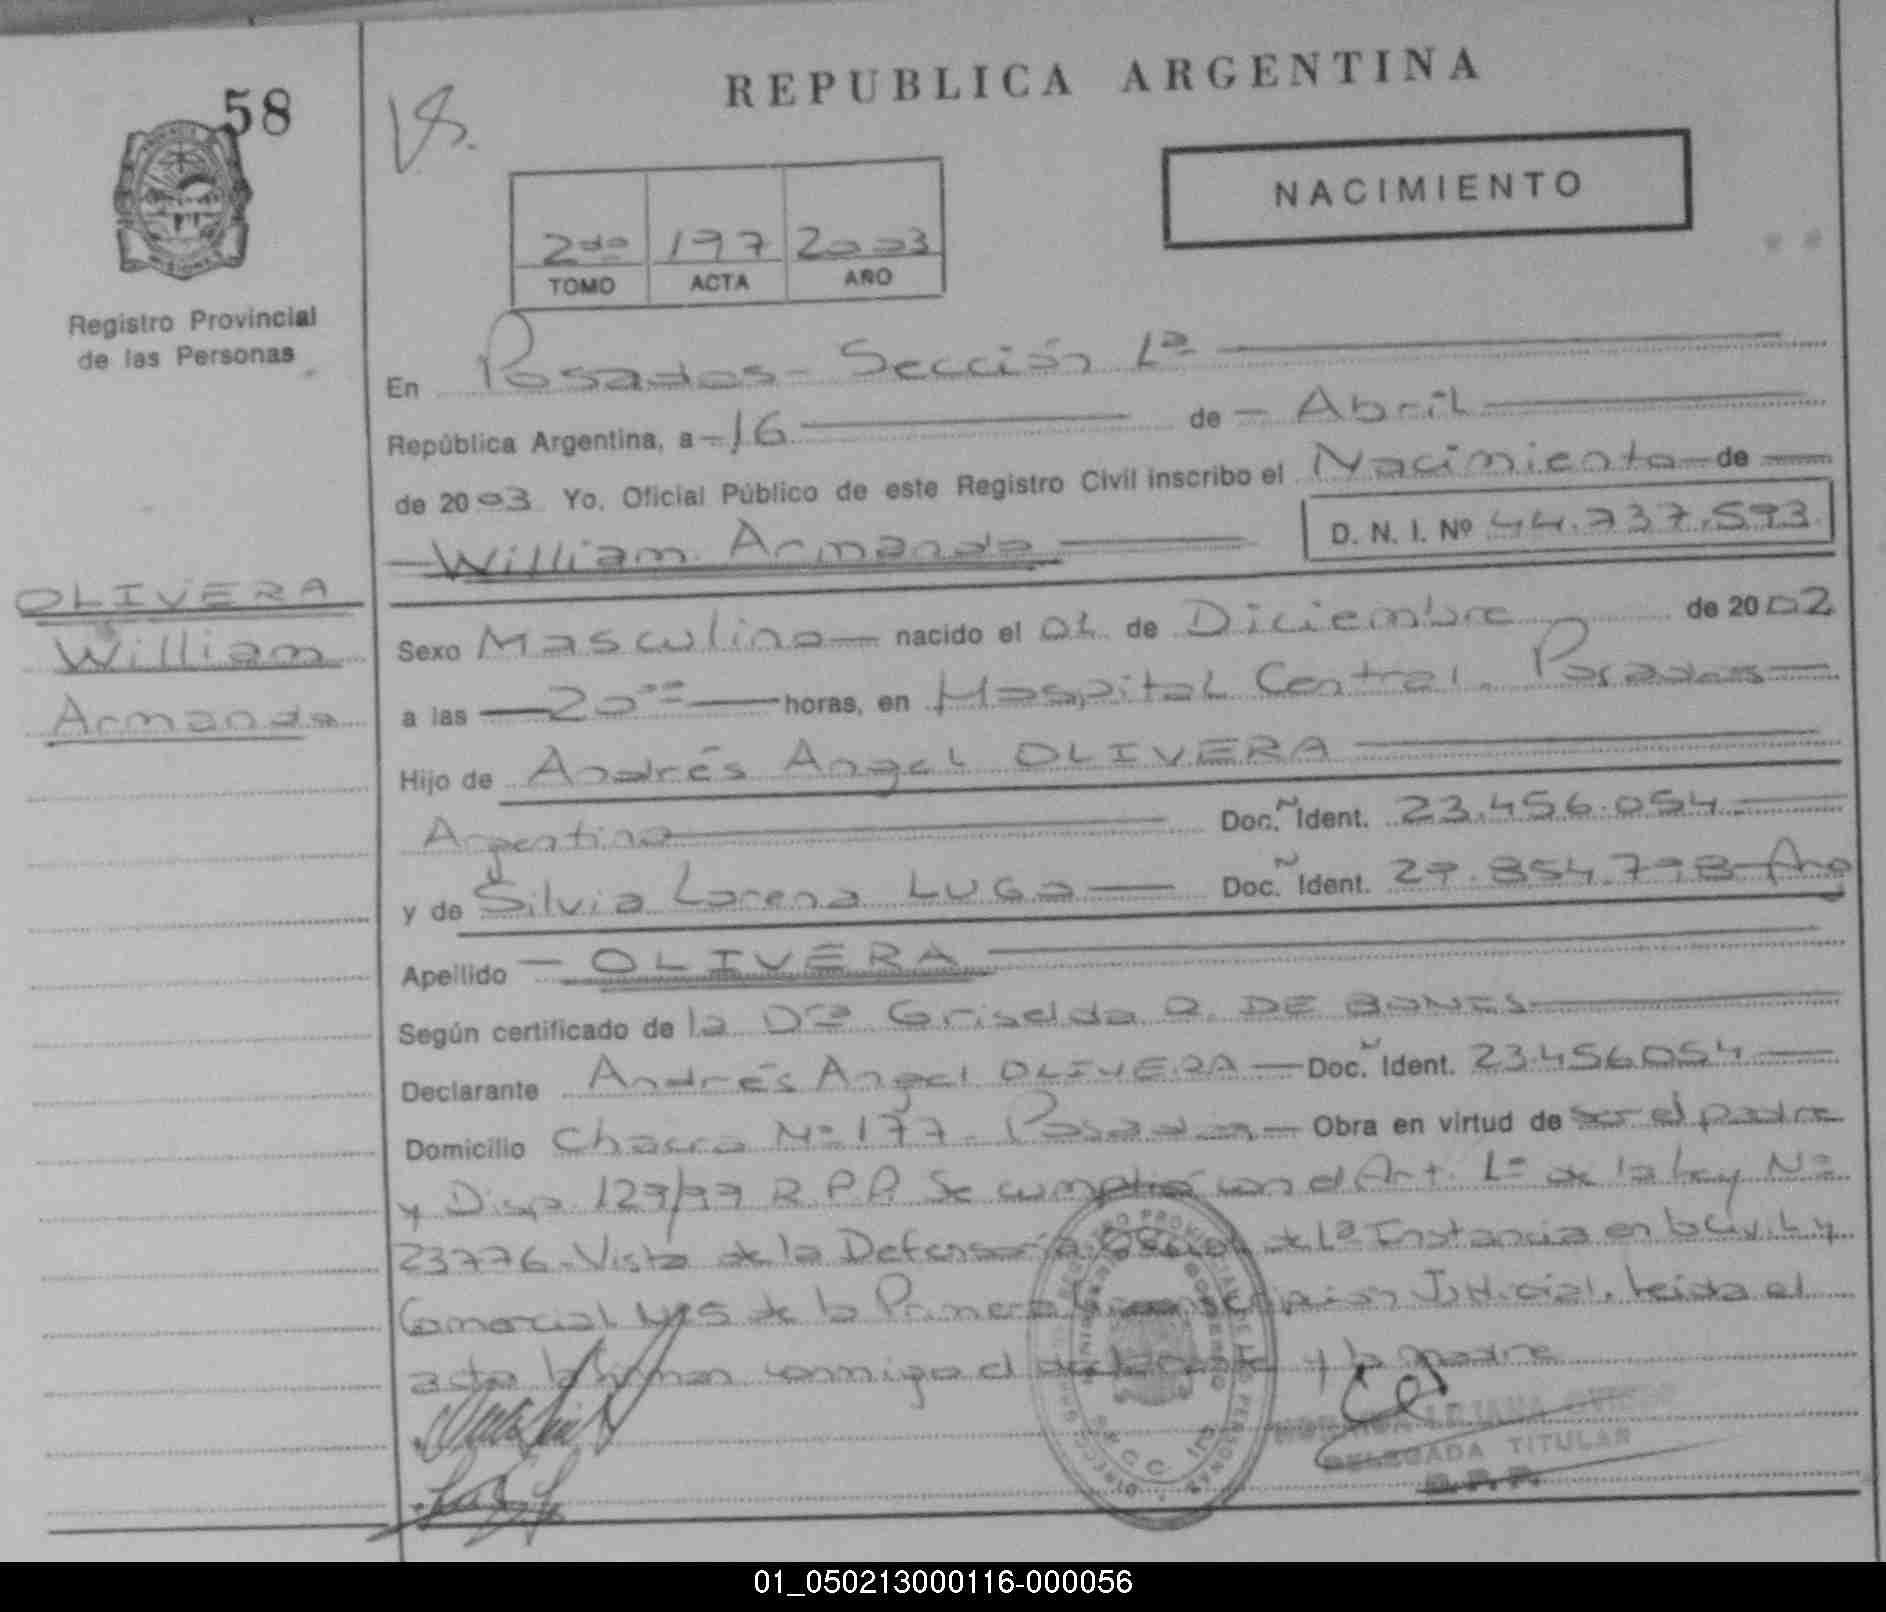 58
VS.
REPUBLICA ARGENTINA
NACIMIENTO
2do 197 2003
TOMO ACTA AÑO
Registro Provincial
de las Personas
En Posadas - Sección 1ª
República Argentina, a - 16 de - Abril
de 2003 Yo. Oficial Público de este Registro Civil inscribo el Nacimiento de
William Armando D. N. I. Nº 44.737.593
OLIVERA
William
Armando
Sexo Masculino nacido el 01 de Diciembre de 2002
a las 20 horas, en Hospital Central. Posadas
Hijo de Andrés Angel OLIVERA
Argentino Doc. Ident. 23.456.054
y de Silvia Lorena LUGO Doc. Ident. 27.854.798
Apellido - OLIVERA
Según certificado de la Dra Griselda DE BONES
Declarante Andrés Angel OLIVERA - Doc. Ident. 23.456054
Domicilio Chacra Nº 177 - Posadas - Obra en virtud de ser el padre
y Disp. 129/99 R.P.P. Se cumplió con el Art. 1º de la Ley Nº
23776. Vista de la Defensoría Oficial de 1ª Instancia en lo Civil y
Comercial Nº 5 de la Primera Circunscripción Judicial. Leida el
acta la firman conmigo el declarante y la madre
DELEGADA TITULAR
R.P.P.
01_050213000116-000056